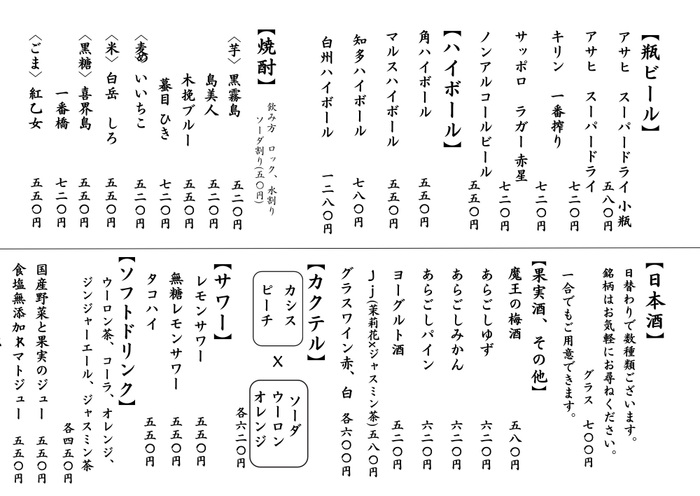 【瓶ビール】
アサヒ スーパードライ 小瓶 五八〇円
アサヒ スーパードライ 七二〇円
キリン 一番搾り 七二〇円
サッポロ ラガー赤星 七二〇円
ノンアルコールビール 五五〇円
【ハイボール】
角ハイボール 五五〇円
マルスハイボール 五五〇円
知多ハイボール 七八〇円
白州ハイボール 一二八〇円
【焼酎】
飲み方 ロック、水割り
ソーダ割り(五〇円)
〈芋〉 黒霧島 五二〇円
島美人 五五〇円
木挽ブルー 五五〇円
蟇目 ひき 七二〇円
〈麦〉 いいちこ 五二〇円
〈米〉 白岳 しろ 五五〇円
〈黒糖〉 喜界島 五五〇円
一番橋 七二〇円
〈ごま〉 紅乙女 五五〇円
【日本酒】
日替わりで数種類ございます。
銘柄はお気軽にお尋ねください。
グラス 七〇〇円
一合でもご用意できます。
【果実酒、その他】
魔王の梅酒 五八〇円
あらごしゆず 六二〇円
あらごしみかん 六二〇円
あらごしパイン 六二〇円
ヨーグルト酒 五二〇円
Jj(茉莉花×ジャスミン茶) 五八〇円
グラスワイン赤、白 各六〇〇円
【カクテル】
カシス
ピーチ
×
ソーダ
ウーロン
オレンジ
各六二〇円
【サワー】
レモンサワー 五五〇円
無糖レモンサワー 五五〇円
タコハイ 五五〇円
【ソフトドリンク】
ウーロン茶、コーラ、オレンジ、
ジンジャーエール、ジャスミン茶
各四五〇円
国産野菜と果実のジュー 五五〇円
食塩無添加トマトジュー 五五〇円